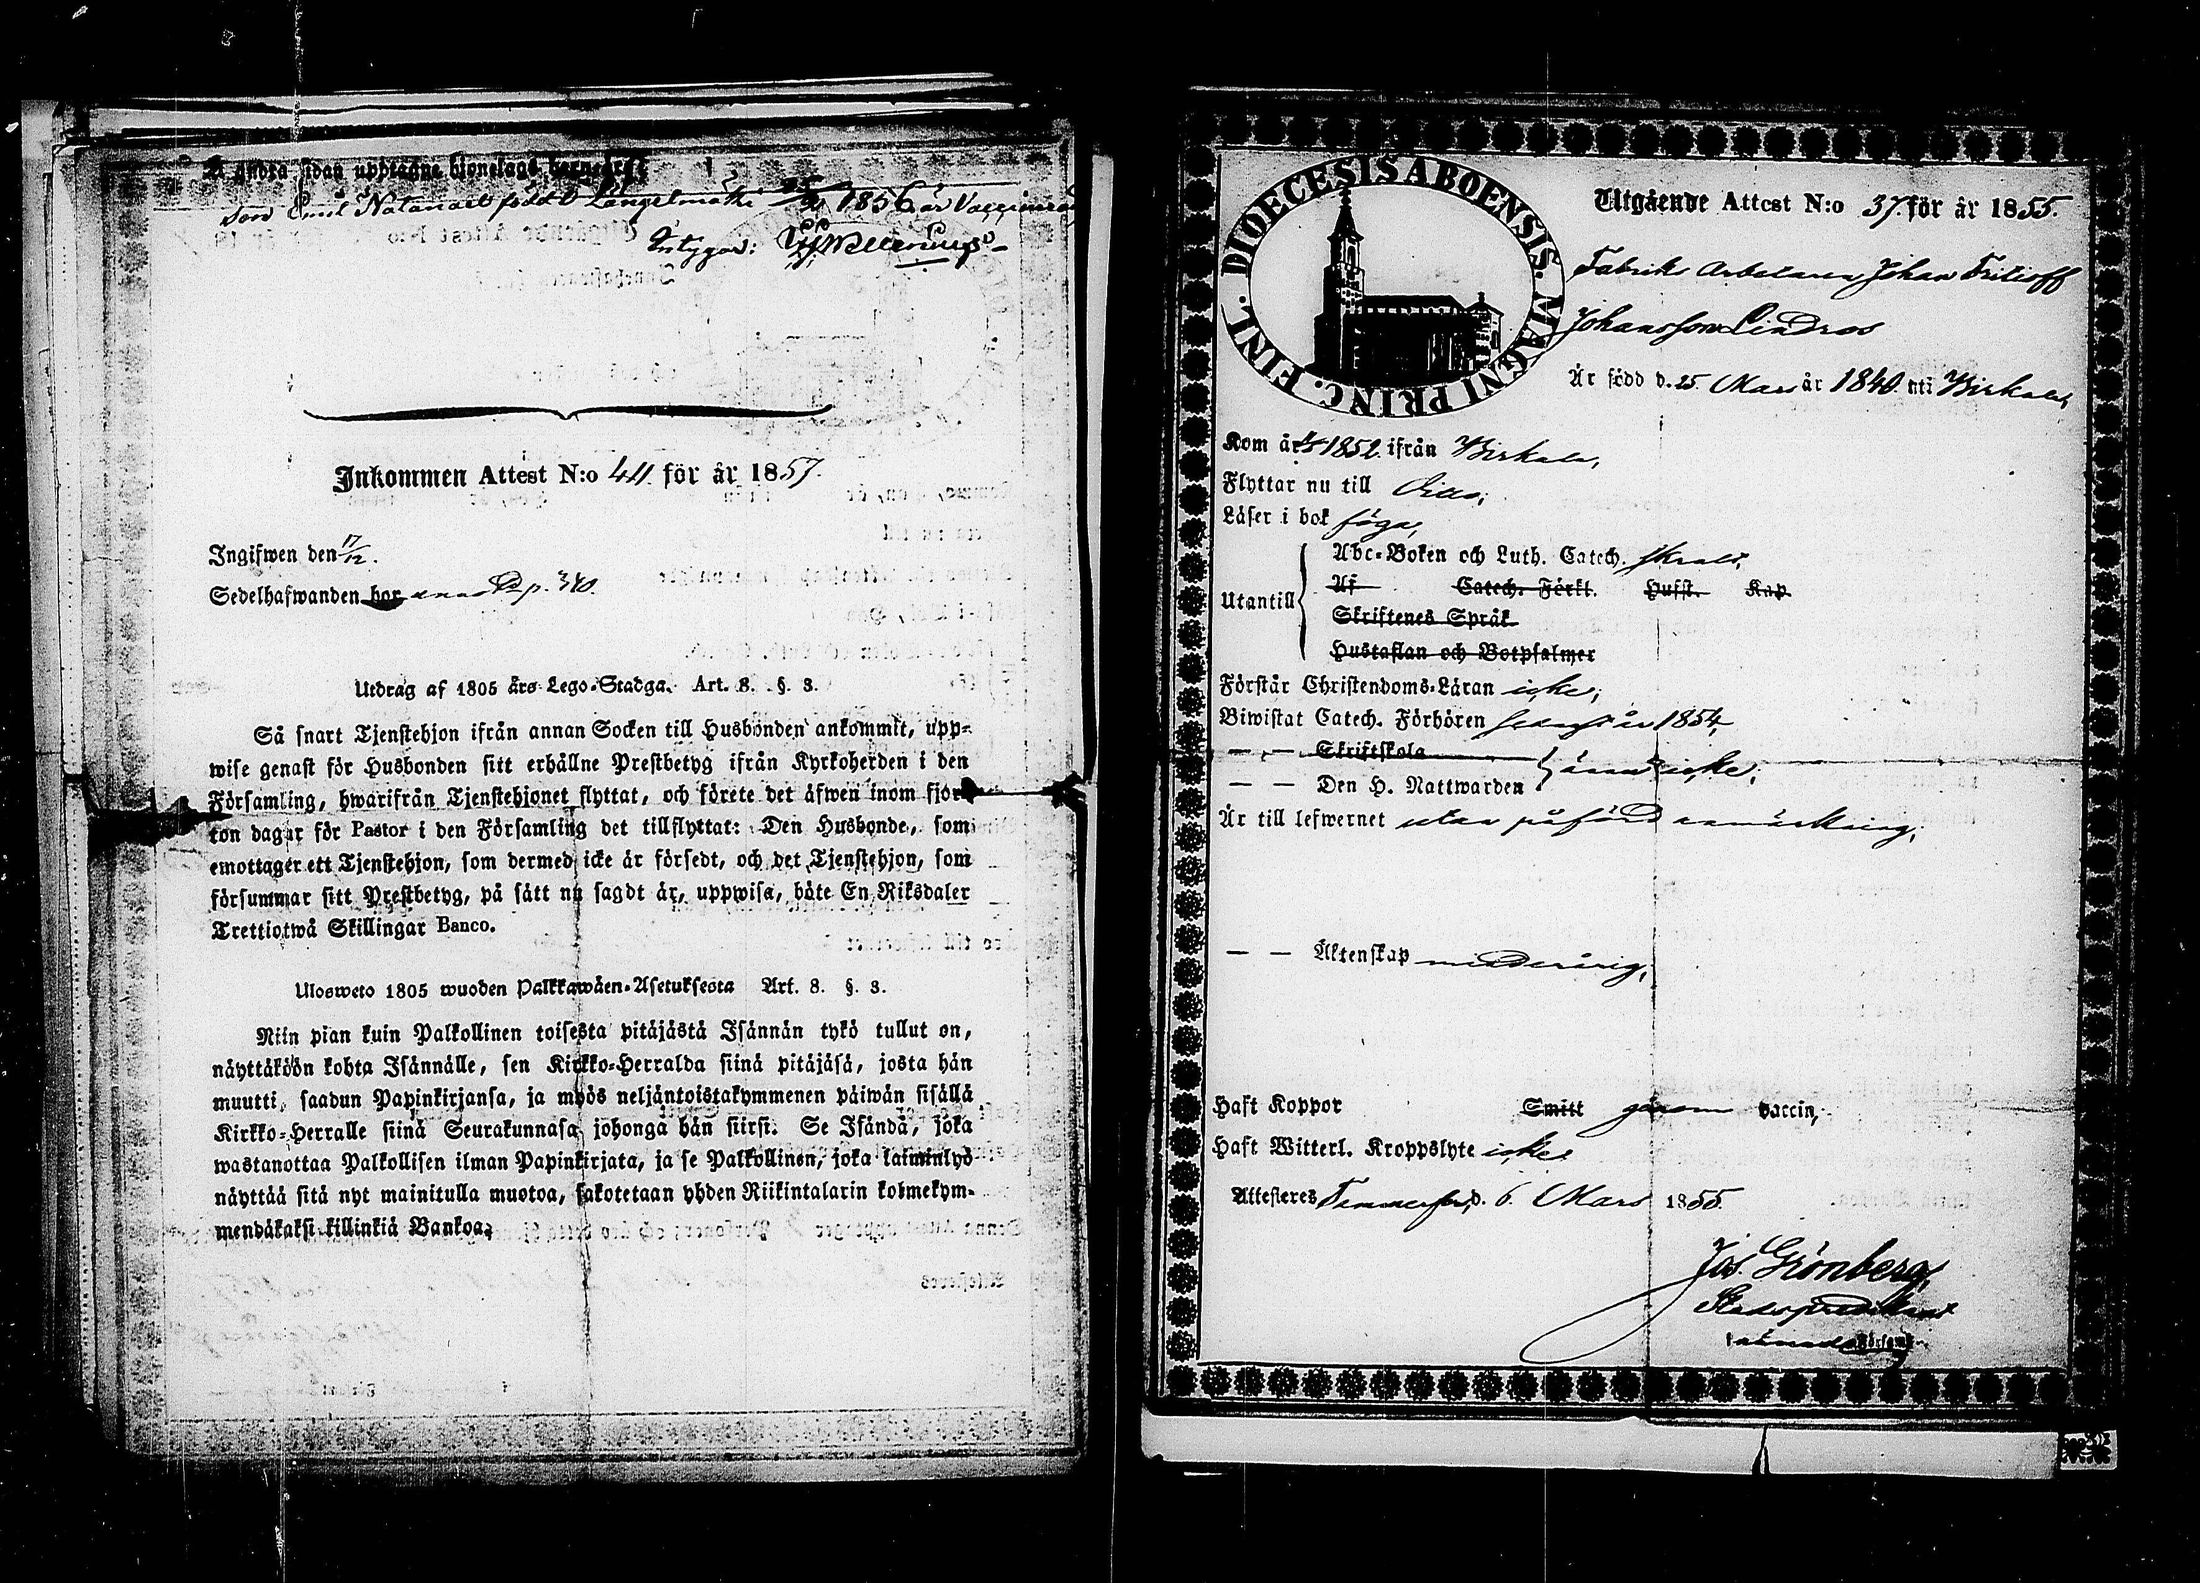 Å andra sidan upptagne hjonelags barn äro:
son Emil Natanael född i Längelmäki 1856 är Vaccinerad
Intygar:
Inkommen Attest N:o 411. för år 1857.
Ingifwen den 17/12.
Sedelhafwanden bor p. 340.
Utdrag af 1805 års Lego-Stadga. Art. 8. §. 3.
Så snart Tjenstehjon ifrån annan Socken till Husbonden ankommit, upp-
wise genast för Husbonden sitt erhållne Prestbetyg ifrån Kyrkoherden i den
Församling, hwarifrån Tjenstehjonet flyttat, och förete det äfwen inom fjor-
ton dagar för Pastor i den Församling det tillflyttat: Den Husbonde, som
emottager ett Tjenstehjon, som dermed icke är försedt, och det Tjenstehjon, som
försummar sitt Prestbetyg, på sätt nu sagdt är, uppwisa, böte En Riksdaler
Trettiotwå Skillingar Banco.
Ulosweto 1805 wuoden Palkkawäen-Asetuksesta Art. 8. §. 3.
Niin pian kuin Palkollinen toisesta pitäjästä Isännän tykö tullut on,
näyttäköön kohta Isännälle, sen Kirkko-Herralda siinä pitäjäsä, josta hän
muutti, saadun Papinkirjansa, ja myös neljäntoistakymmenen päiwän sisällä
Kirkko-Herralle siinä Seurakunnasa johonga hän siirsi. Se Isändä, joka
wastanottaa Palkollisen ilman Papinkirjata, ja se Palkollinen, joka laiminlyö
näyttää sitä nyt mainitulla muotoa, sakotetaan yhden Riikintalarin kolmekym-
mendäkaksi killinkiä Bankoa.
DIOECESIS ABOENSIS. MAGNI PRINC. FINL.
Utgående Attest N:o 37. för år 1855.
Fabriks Arbetaren Johan Fritioff
Johansson Lindros
Är född d. 25 Mars år 1840 uti Birkala,
Kom år 1852 ifrån Birkala,
Flyttar nu till
Läser i bok föga,
Utantill
Abc-Boken och Luth. Catech. svrlt,
Af Catech. Förkl. Hufst. Kap.
Skriftenes Språk
Hustaflan och Botpsalmer
Förstår Christendoms-Läran icke;
Biwistat Catech. Förhören senast år 1854,
— — Skriftskola
— — Den H. Nattwarden ännu icke;
Är till lefwernet utan påförd anmärkning;
— — Äktenskap minderårig,
Haft Koppor Smitt genom vaccin,
Haft Witterl. Kroppslyte icke.
Attesteres Tammerfors, d. 6. Mars 1855.
Jos. Grönberg,
Stadspredikant